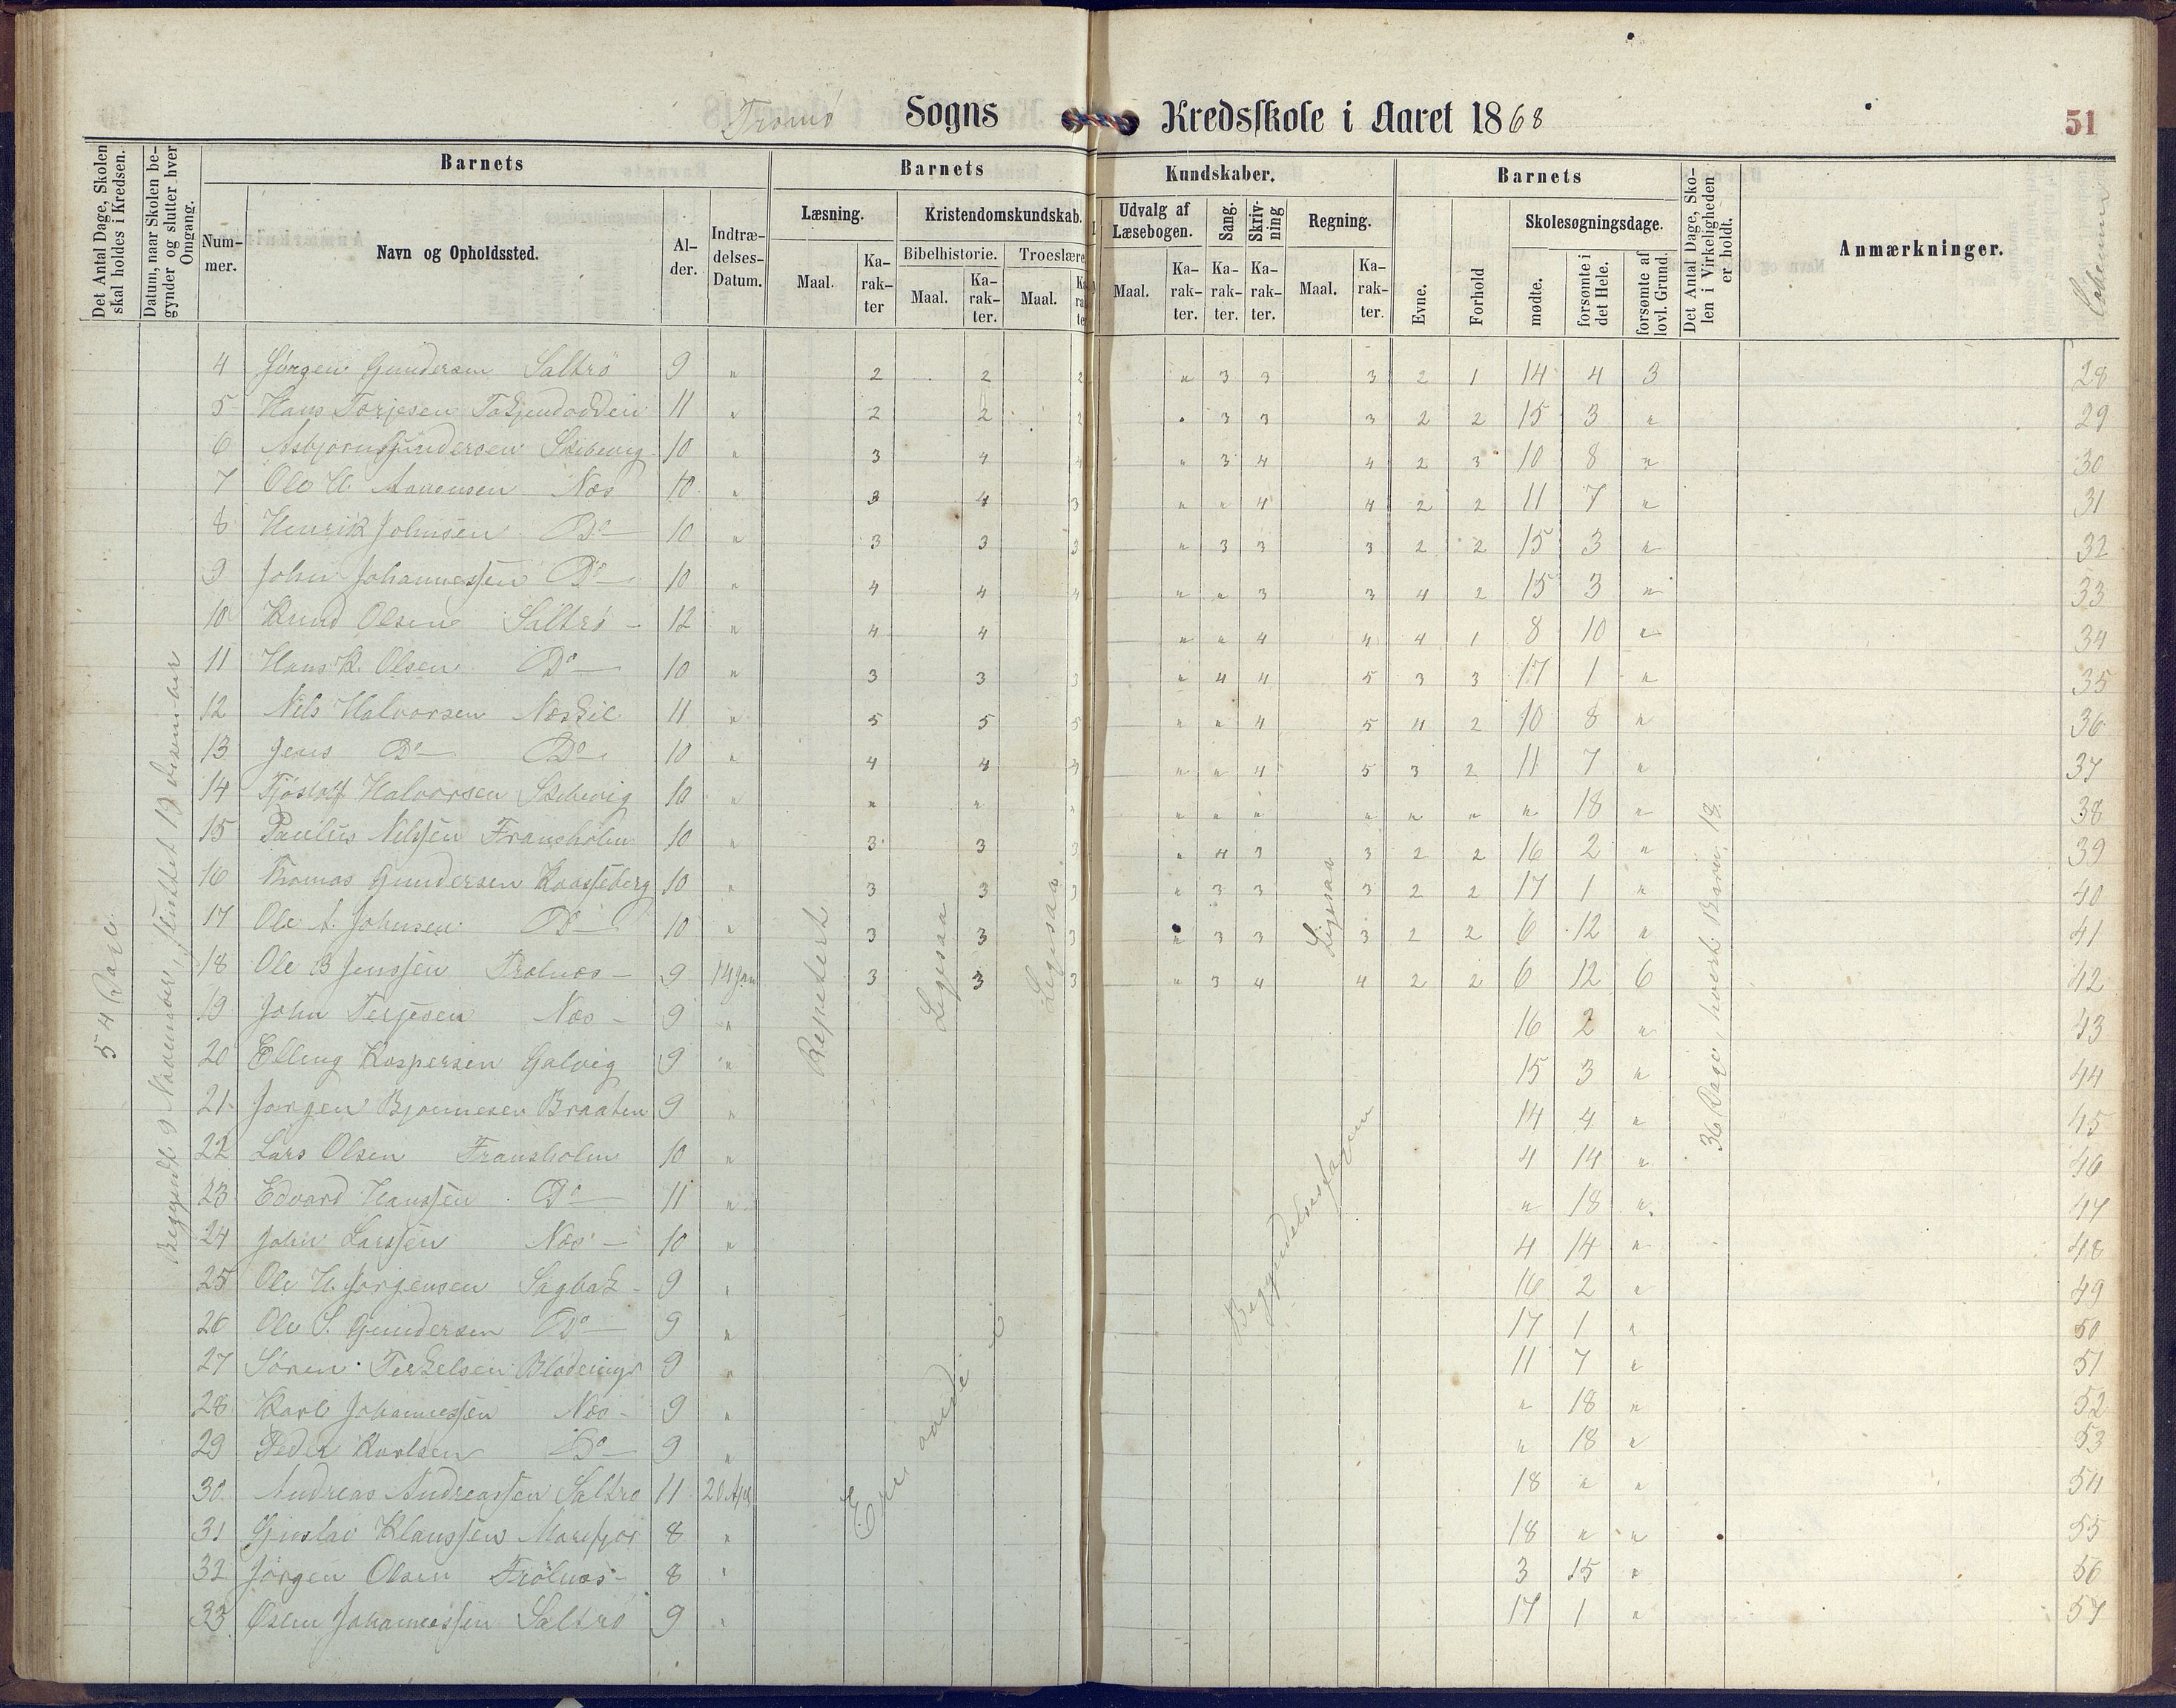 Tromö Sogns Kredsskole i Aaret 1868 51
Det Antal Dage, Skolen skal holdes i Kredsen.
Datum, naar Skolen begynder og slutter hver Omgang.
Barnets
Nummer.
Navn og Opholdssted.
Alder.
Indtrædelses-Datum.
Barnets Kundskaber.
Læsning. Kristendomskundskab. Udvalg af Læsebogen. Sang. Skrivning Regning.
Bibelhistorie. Troeslære
Maal. Karakter Maal. Karakter. Maal. Maal. Karakter. Karakter. Karakter. Maal. Karakter.
Barnets
Evne. Forhold Skolesøgningsdage.
mødte. forsømte i det Hele. forsømte af lovl. Grund.
Det Antal Dage, Skolen i Virkeligheden er holdt.
Anmærkninger.
4 Jørgen Gundersen Saltrö 9 " 2 2 2 " 3 3 3 2 1 14 4 3 28
5 Hans Torjesen 11 " 2 2 2 " 3 3 3 2 2 15 3 " 29
6 Asbjørn Gundersen Skibevig 10 " 3 4 4 " 3 4 4 2 3 10 8 " 30
7 Ole H. Aanensen Næs 10 " 3 4 3 " " 4 4 2 2 11 7 " 31
8 Henrik Johnsen Do 10 " 3 3 3 " 3 3 3 2 2 15 3 " 32
9 John Johannessen Do 10 " 4 4 4 " " 3 3 4 2 15 3 " 33
10 Knud Olsen Saltrö 12 " 4 4 " " 4 4 4 1 8 10 " 34
11 Hans K. Olsen Do 10 " 3 3 3 " 4 4 5 3 3 17 1 " 35
12 Nils Halvorsen Næskil 11 " 5 5 5 " " 4 5 4 2 10 8 " 36
13 Jens Do Do 10 " 4 4 4 " " 4 5 3 2 11 7 " 37
14 Tjöstolf Halvorsen Skibevig 10 " " " " " " " " " " " 18 " 38
15 Paulus Nilssen Fransholm 10 " 3 3 3 " 4 3 3 2 2 16 2 " 39
16 Thomas Gundersen Kaasseberg 10 " 3 3 3 " 3 3 3 2 2 17 1 " 40
17 Ole A. Johnsen Do 10 " 3 3 3 " 3 3 3 2 2 6 12 " 41
18 Ole B Jenssen Trolnæs 9 14 Jan 3 3 3 " 3 4 4 2 2 6 12 6 42
19 John Terjesen Næs 9 " 16 2 " 43
20 Elling Kaspersen Galvig 9 " 15 3 " 44
21 Jørgen Bjonnesen Braaten 9 " 14 4 " 45
22 Lars Olsen Fransholm 10 " 4 14 " 46
23 Edvard Hanssen Do 11 " " 18 " 47
24 John Larssen Næs 10 " 4 14 " 48
25 Ole H. Jørgensen Sagbak 9 " 16 2 " 49
26 Ole S. Gundersen Do 9 " 17 1 " 50
27 Søren Terkelsen 9 " 11 7 " 51
28 Karl Johannessen Næs 9 " " 18 " 52
29 Peder Karlsen Do 9 " " 18 " 53
30 Andreas Andreassen Saltrö 11 20 Apr 18 " " 54
31 Gustav Klaussen 8 " 18 " " 55
32 Jörgen Olsen Trölnæs 8 " 3 15 " 56
33 Johannessen Saltrö 9 " 17 1 " 57
54 Dage
Begyndt 9 November, sluttet 19 Desember
Repetert
Ligesaa
Ligesaa
Ligesaa
Begyndelsesfagene
36 Dage, hvert Barn 18